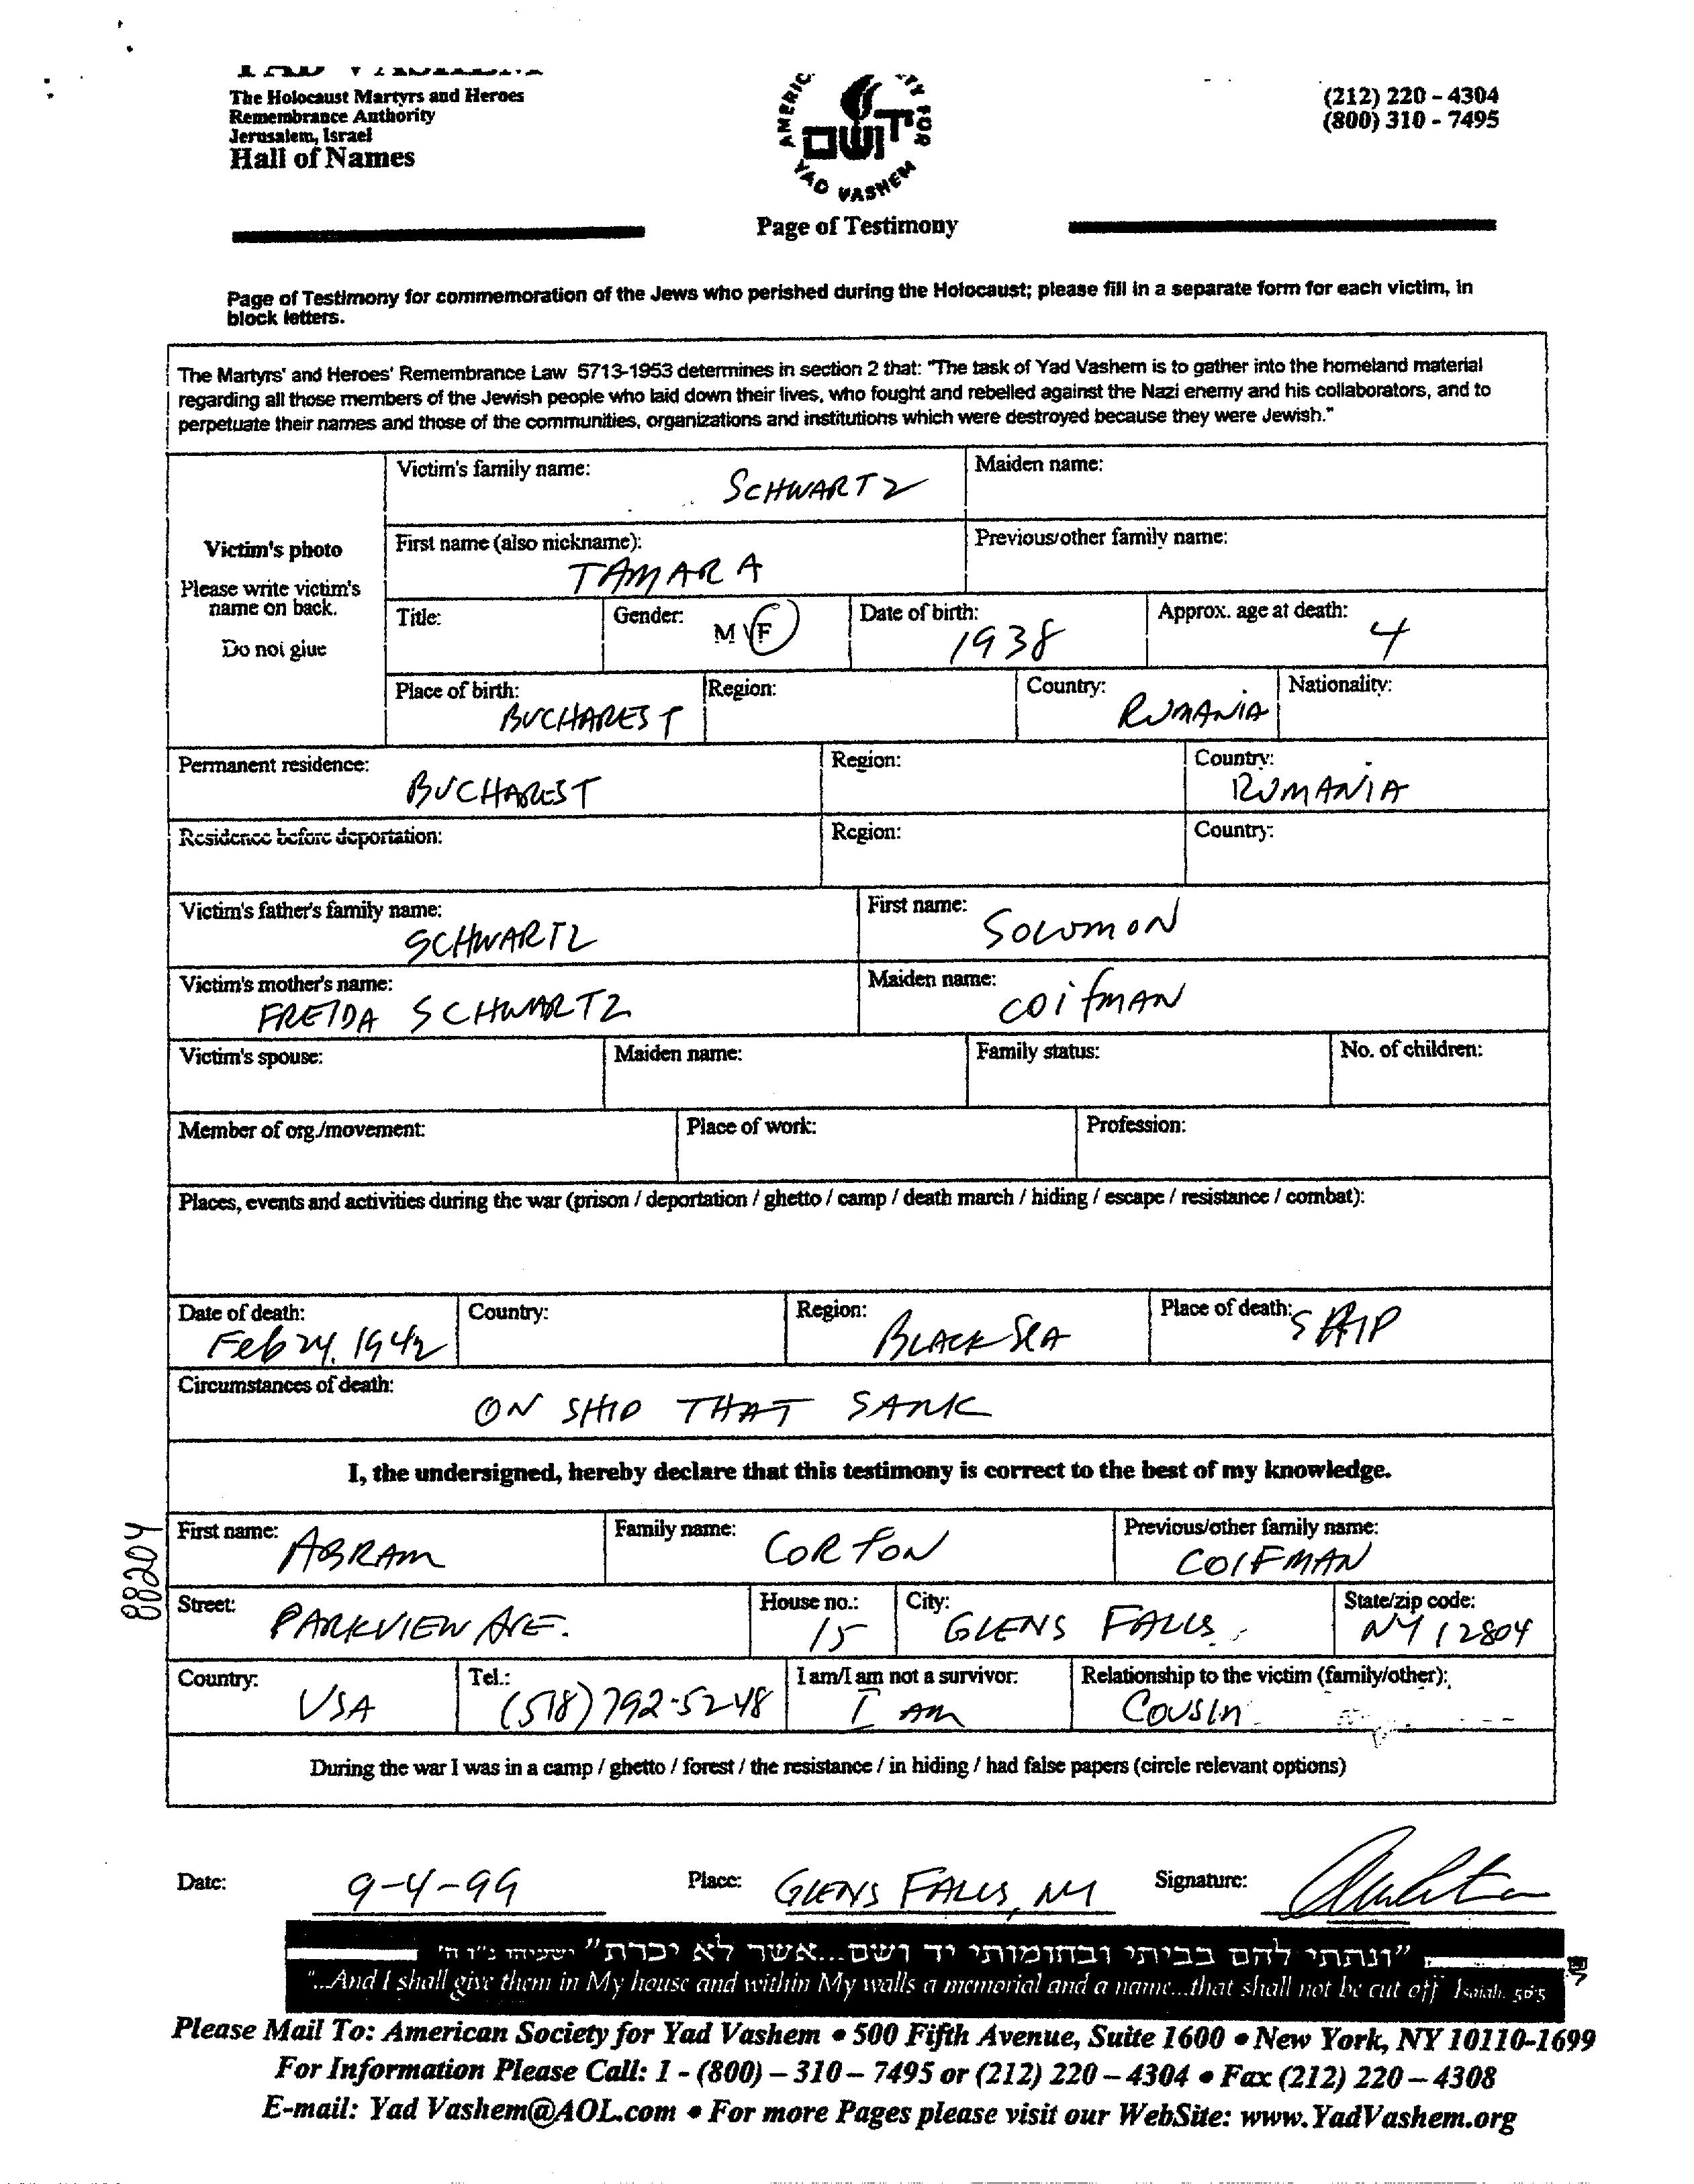 The Holocaust Martyrs and Heroes
Remembrance Authority
Jerusalem, Israel
Hall of Names
AMERIC TY FOR YAD VASHEM
ושם
(212) 220 - 4304
(800) 310 - 7495
Page of Testimony
Page of Testimony for commemoration of the Jews who perished during the Holocaust; please fill in a separate form for each victim, in
block letters.
The Martyrs' and Heroes' Remembrance Law 5713-1953 determines in section 2 that: "The task of Yad Vashem is to gather into the homeland material
regarding all those members of the Jewish people who laid down their lives, who fought and rebelled against the Nazi enemy and his collaborators, and to
perpetuate their names and those of the communities, organizations and institutions which were destroyed because they were Jewish."
Victim's photo
Please write victim's
name on back.
Do not glue
Victim's family name: SCHWARTZ Maiden name:
First name (also nickname): TAMARA Previous/other family name:
Title: Gender: M \ F Date of birth: 1938 Approx. age at death: 4
Place of birth: BUCHAREST Region: Country: RUMANIA Nationality:
Permanent residence: BUCHAREST Region: Country: RUMANIA
Residence before deportation: Region: Country:
Victim's father's family name: SCHWARTZ First name: SOLOMON
Victim's mother's name: FREIDA SCHWARTZ Maiden name: COIFMAN
Victim's spouse: Maiden name: Family status: No. of children:
Member of org./movement: Place of work: Profession:
Places, events and activities during the war (prison / deportation / ghetto / camp / death march / hiding / escape / resistance / combat):
Date of death: Feb 24, 1942 Country: Region: BLACK SEA Place of death: SHIP
Circumstances of death: ON SHIP THAT SANK
I, the undersigned, hereby declare that this testimony is correct to the best of my knowledge.
88204
First name: ABRAM Family name: CORTON Previous/other family name: COIFMAN
Street: PARKVIEW AVE. House no.: 15 City: GLENS FALLS State/zip code: NY 12804
Country: USA Tel.: (518) 792-5248 I am/I am not a survivor: I AM Relationship to the victim (family/other): COUSIN
During the war I was in a camp / ghetto / forest / the resistance / in hiding / had false papers (circle relevant options)
Date: 9-4-99 Place: GLENS FALLS, NY Signature:
"ונתתי להם בביתי ובחומותי יד ושם...אשר לא יכרת" ישעיהו נ"ו ה'
"...And I shall give them in My house and within My walls a memorial and a name...that shall not be cut off Isaiah. 56:5
Please Mail To: American Society for Yad Vashem • 500 Fifth Avenue, Suite 1600 • New York, NY 10110-1699
For Information Please Call: 1 - (800) – 310 – 7495 or (212) 220 – 4304 • Fax (212) 220 – 4308
E-mail: Yad Vashem@AOL.com • For more Pages please visit our WebSite: www.YadVashem.org